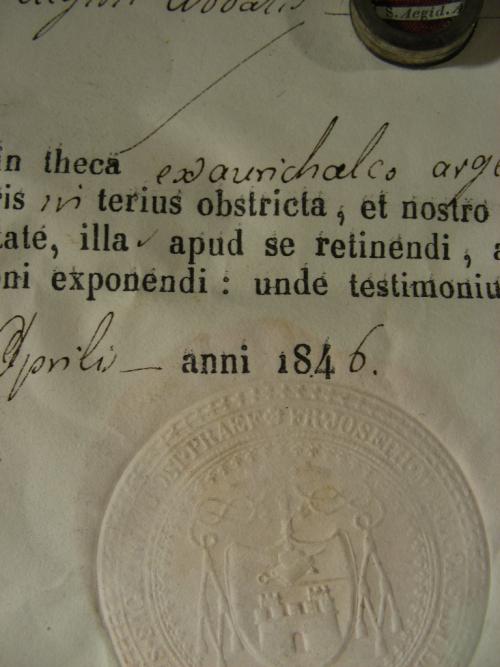 Abbatis
S. Aegid. A
in thecâ ex aurichalco arge
ris interius obstricta, et nostro
tate, illa apud se retinendi, a
oni exponendi: unde testimoniu
Aprilis — anni 1846.